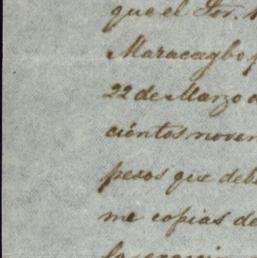 que el Sor.
Maracaybo
22 de Marzo
cientos noven
pesos que deb
me copias de